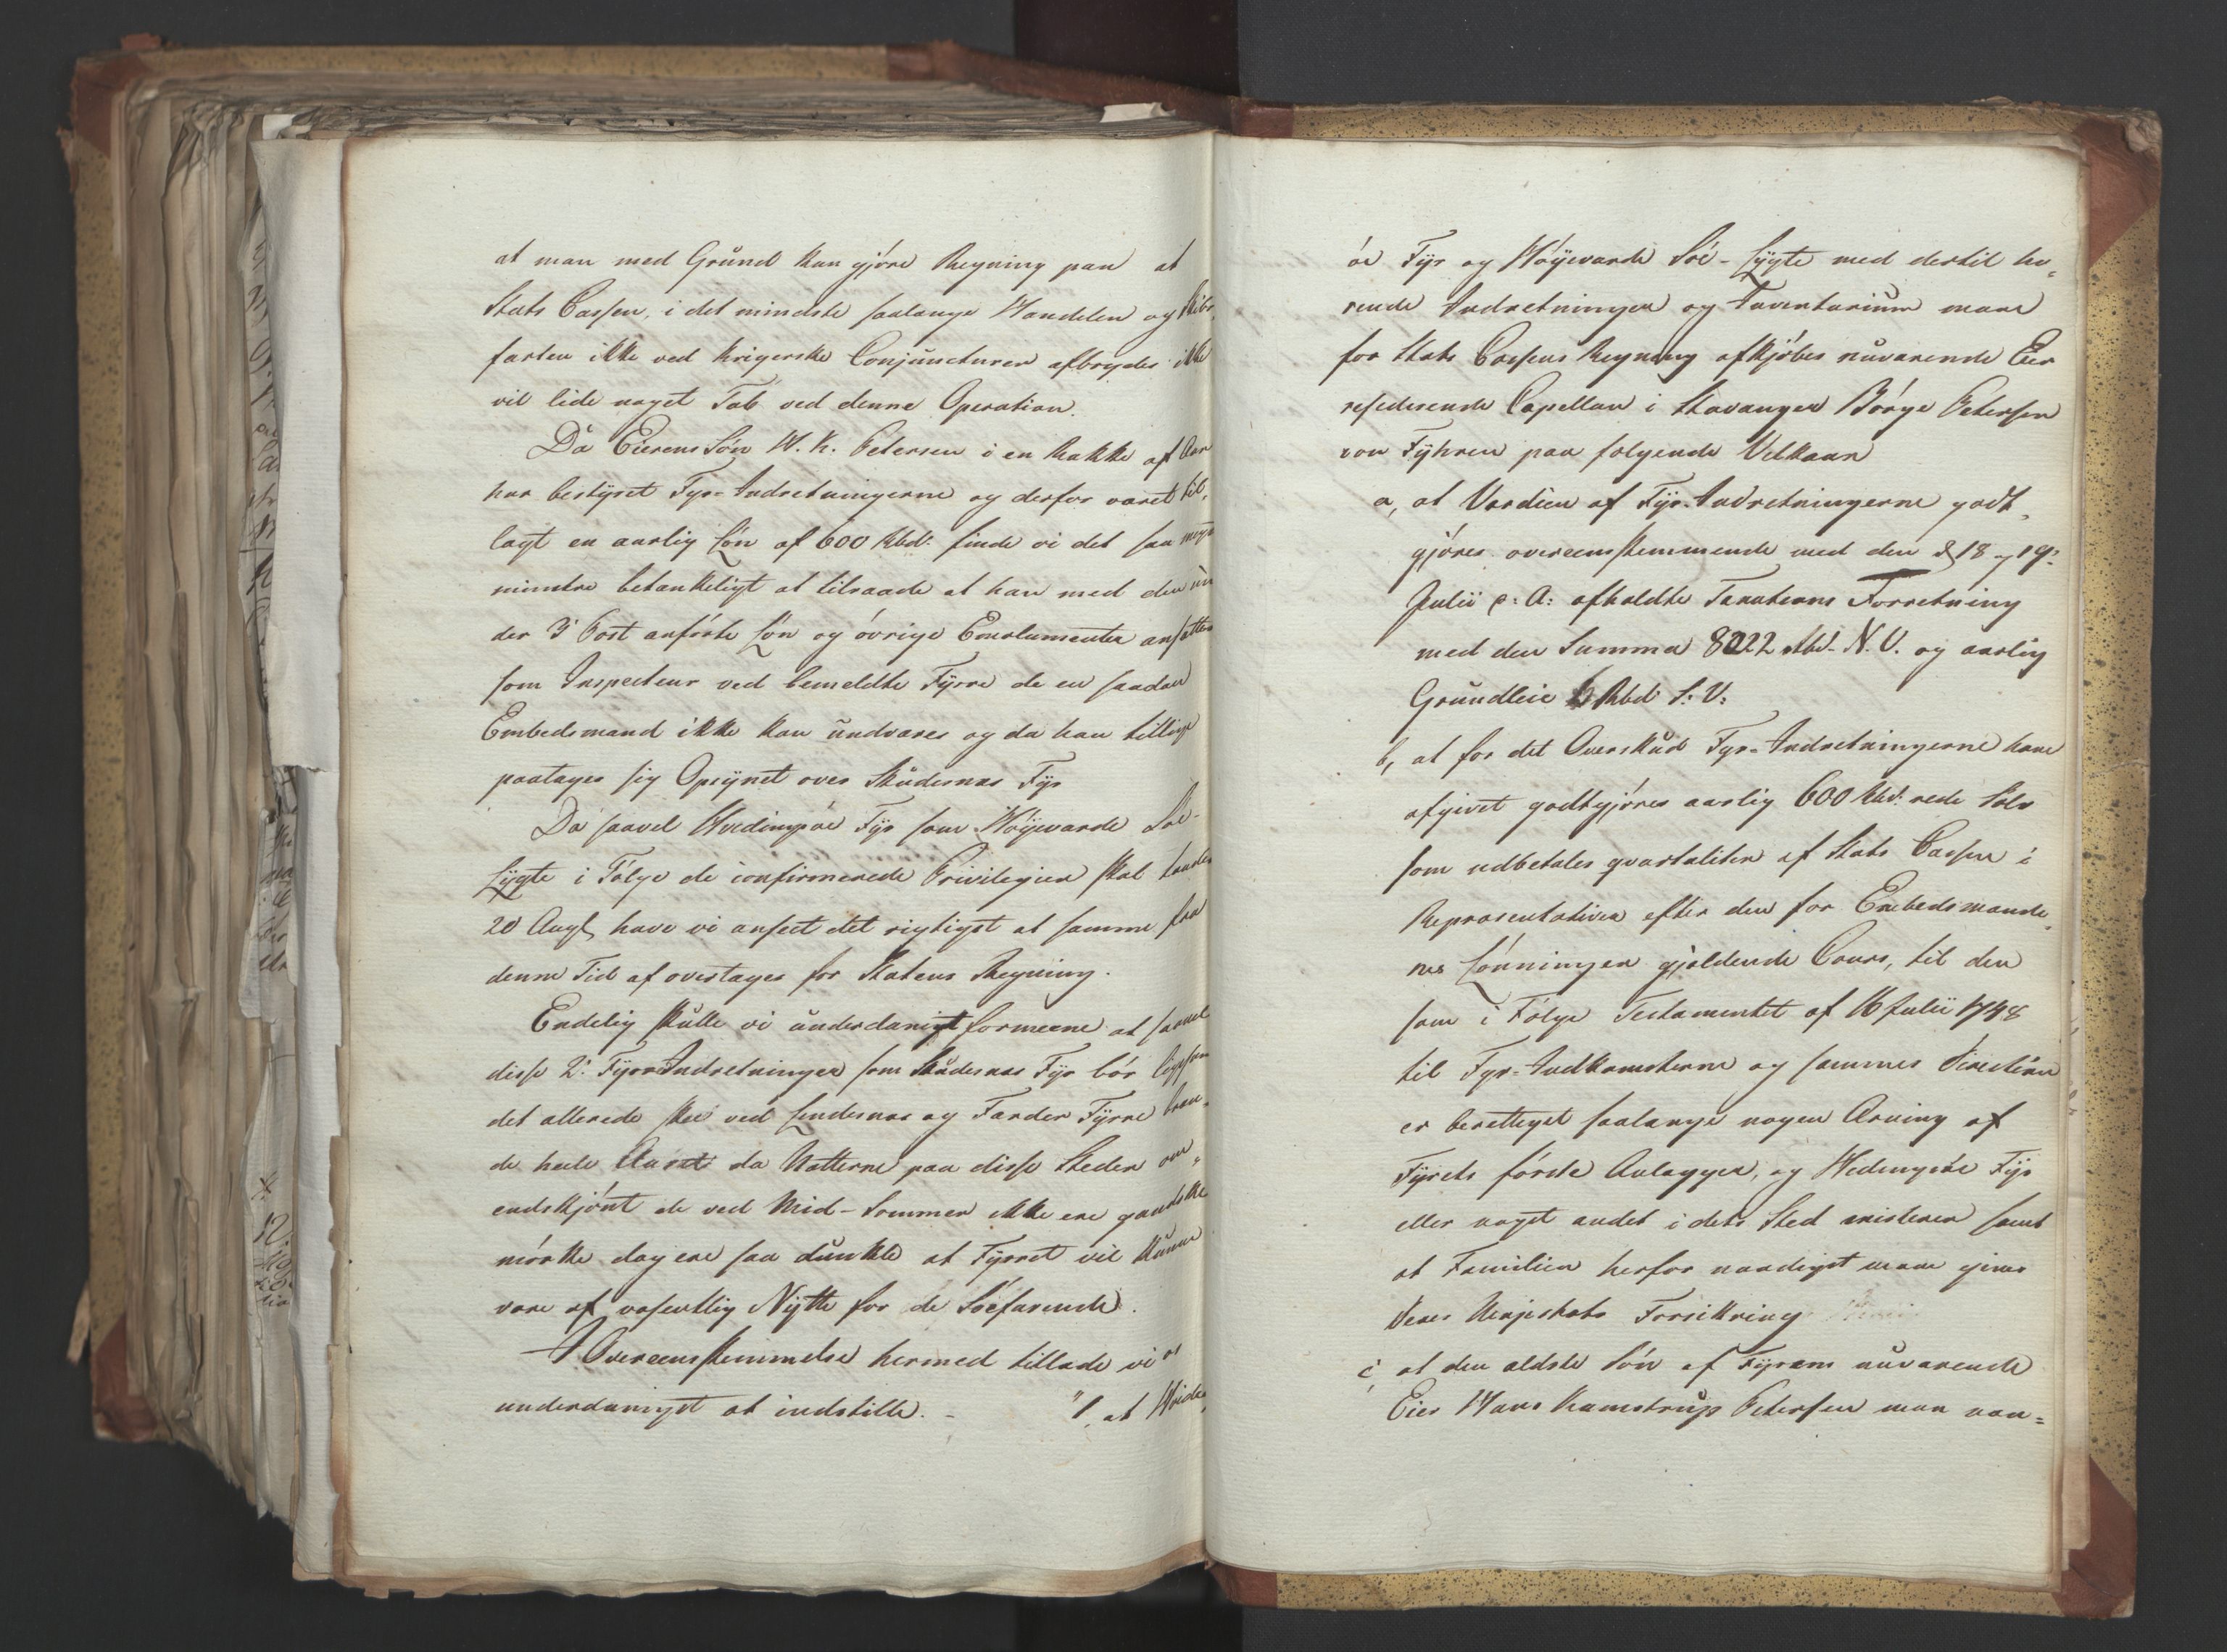 at man med Grund kan gjøre Regning paa at
Stats Cassen, i det mindste saalænge Handelen og Skibs,
farten ikke ved krigerske Conjuncturer afbrydes ikke
vil lide noget Tab ved denne Operation.
Da Eierens Søn H. K. Petersen i en Række af Aar
har bestyret Fyr-Indretningerne og derfor været til,
lagt en aarlig Løn af 600 Rbd. finde vi det saa meget
mindre betænkeligt at tilraade at han med den un
der 3 Post anførte Løn og øvrige Emolumenter ansættes
som Inspecteur ved bemeldte Fyrre da en saadan
Embedsmand ikke kan undværes og da han tillige
paatager sig Opsynet over Skudesnæs Fyr
Da saavel Hvedingsøe Fyr som Høyevarde Søe-
Lygte i Følge de confirmerede Privilegier skal tændes
20 Augt, have vi anseet det rigtigst at samme fra
denne Tid af overtages for Statens Regning.
Endelig skulle vi underdanigst formeene at saavel
disse 2de Fyrindretninger som Skudesnæs Fyr bør ligesom
det allerede skee ved Lindesnæs og Færder Fyrre bræn,
de heele Aaret da Nætterne paa disse Steder om,
endskjønt de ved Mid-Sommer ikke ere gandske
mørke dog ere saa dunkle at Fyrret vil kunne
være af væsentlig Nytte for de Søefarende.
I Overeensstemmelse hermed tillade vi os
underdanigst at indstille. - "1, at Hvidings,
øe Fyr og Høyevarde Søe-Lygte med dertil hø,
rende Indretninger og Inventarium maae
for Stats Cassens Regning afkjøbes nuværende Eier
residerende Capellan i Stavanger Børge Petersen
von Fyhren paa følgende Vilkaar
a, at Værdien af Fyr-Indretningerne godt,
gjøres overeensstemmende med den d 18 og 19.
Julii c: A: afholdte Taxations Forretning
med den Summa 8022 Rbd. N. V. og aarlig
Grundleie Rbd. S: V:
b, at for det Overskud Fyr-Indretningerne have
afgivet godtgjøres aarlig 600 Rbd. rede Sølv
som udbetales qvartaliter af Stats Cassen i
Repræsentativer efter den for Embedsmænde,
nes Lønninger gjeldende Cours, til den
som i Følge Testamentet af 16 Julii 1748
til Fyr-Indkomsterne og sammes Direction
er berettiget saalænge nogen Arving af
Fyrets første Anlægger, og Hvidingsøe Fyr
eller noget andet i dets Sted existerer samt
at Familien herfor naadigst maae gives
Deres Majestæts Forsikkring
c, at den ældste Søn af Fyrens nuværende
Eier Hans Kamstrup Petersen maa næv=